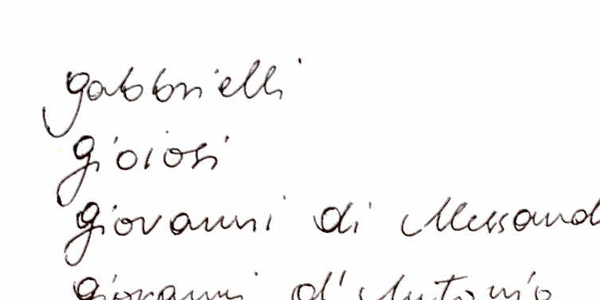 gabbrielli
gioiosi
giovanni di
giovanni d'Antonio